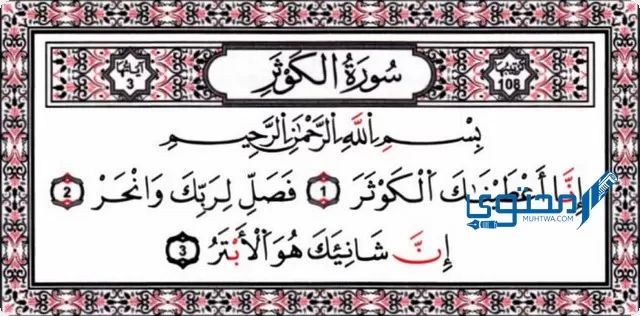 ترتيبها 108 سُورَةُ الكَوْثَرِ آياتها 3
بِسْمِ اللَّهِ الرَّحْمَٰنِ الرَّحِيمِ
إِنَّا أَعْطَيْنَٰكَ الْكَوْثَرَ 1 فَصَلِّ لِرَبِّكَ وَانْحَرْ 2
إِنَّ شَانِئَكَ هُوَ الْأَبْتَرُ 3
محتوى
MUHTWA.COM